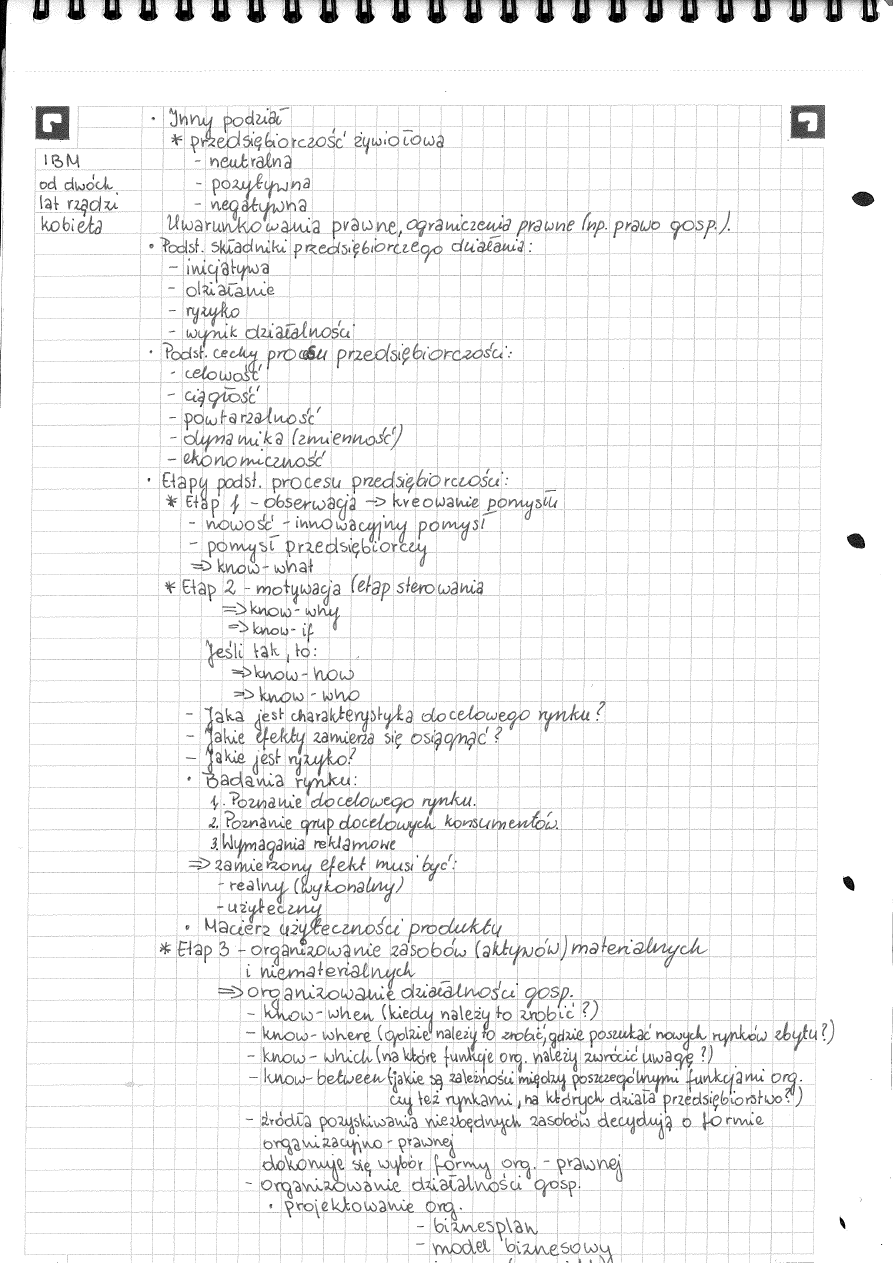 · Inny podział
* przedsiębiorczość żywiołowa
- neutralna
- pozytywna
- negatywna
IBM
od dwóch
lat rządzi
kobieta
Uwarunkowania prawne, ograniczenia prawne (np. prawo gosp.).
· Podst. składniki przedsiębiorczego działania:
- inicjatywa
- działanie
- ryzyko
- wynik działalności
· Podst. cechy procesu przedsiębiorczości:
- celowość
- ciągłość
- powtarzalność
- dynamika (zmienność)
- ekonomiczność
· Etapy podst. procesu przedsiębiorczości:
* Etap 1 - obserwacja → kreowanie pomysłu
- nowość - innowacyjny pomysł
- pomysł przedsiębiorczy
⇒ know-what
* Etap 2 - motywacja (etap sterowania
⇒ know-why
⇒ know-if
Jeśli tak, to:
⇒ know-how
⇒ know-who
- Jaka jest charakterystyka docelowego rynku?
- Jakie efekty zamierza się osiągnąć?
- Jakie jest ryzyko?
· Badania rynku:
1. Poznanie docelowego rynku.
2. Poznanie grup docelowych konsumentów.
3. Wymagania reklamowe
⇒ zamierzony efekt musi być:
- realny (wykonalny)
- użyteczny
· Macierz użyteczności produkty
* Etap 3 - organizowanie zasobów (aktywów) materialnych
i niematerialnych
⇒ organizowanie działalności gosp.
- know-when (kiedy należy to zrobić?)
- know-where (gdzie należy to zrobić, gdzie poszukać nowych rynków zbytu?)
- know-which (na które funkcje org. należy zwrócić uwagę?)
- know-between (jakie są zależności między poszczególnymi funkcjami org.
czy też rynkami, na których działa przedsiębiorstwo?)
- źródła pozyskiwania niezbędnych zasobów decydują o formie
organizacyjno-prawnej
dokonuje się wybór formy org.-prawnej
- organizowanie działalności gosp.
· projektowanie org.
- biznesplan
- model biznesowy